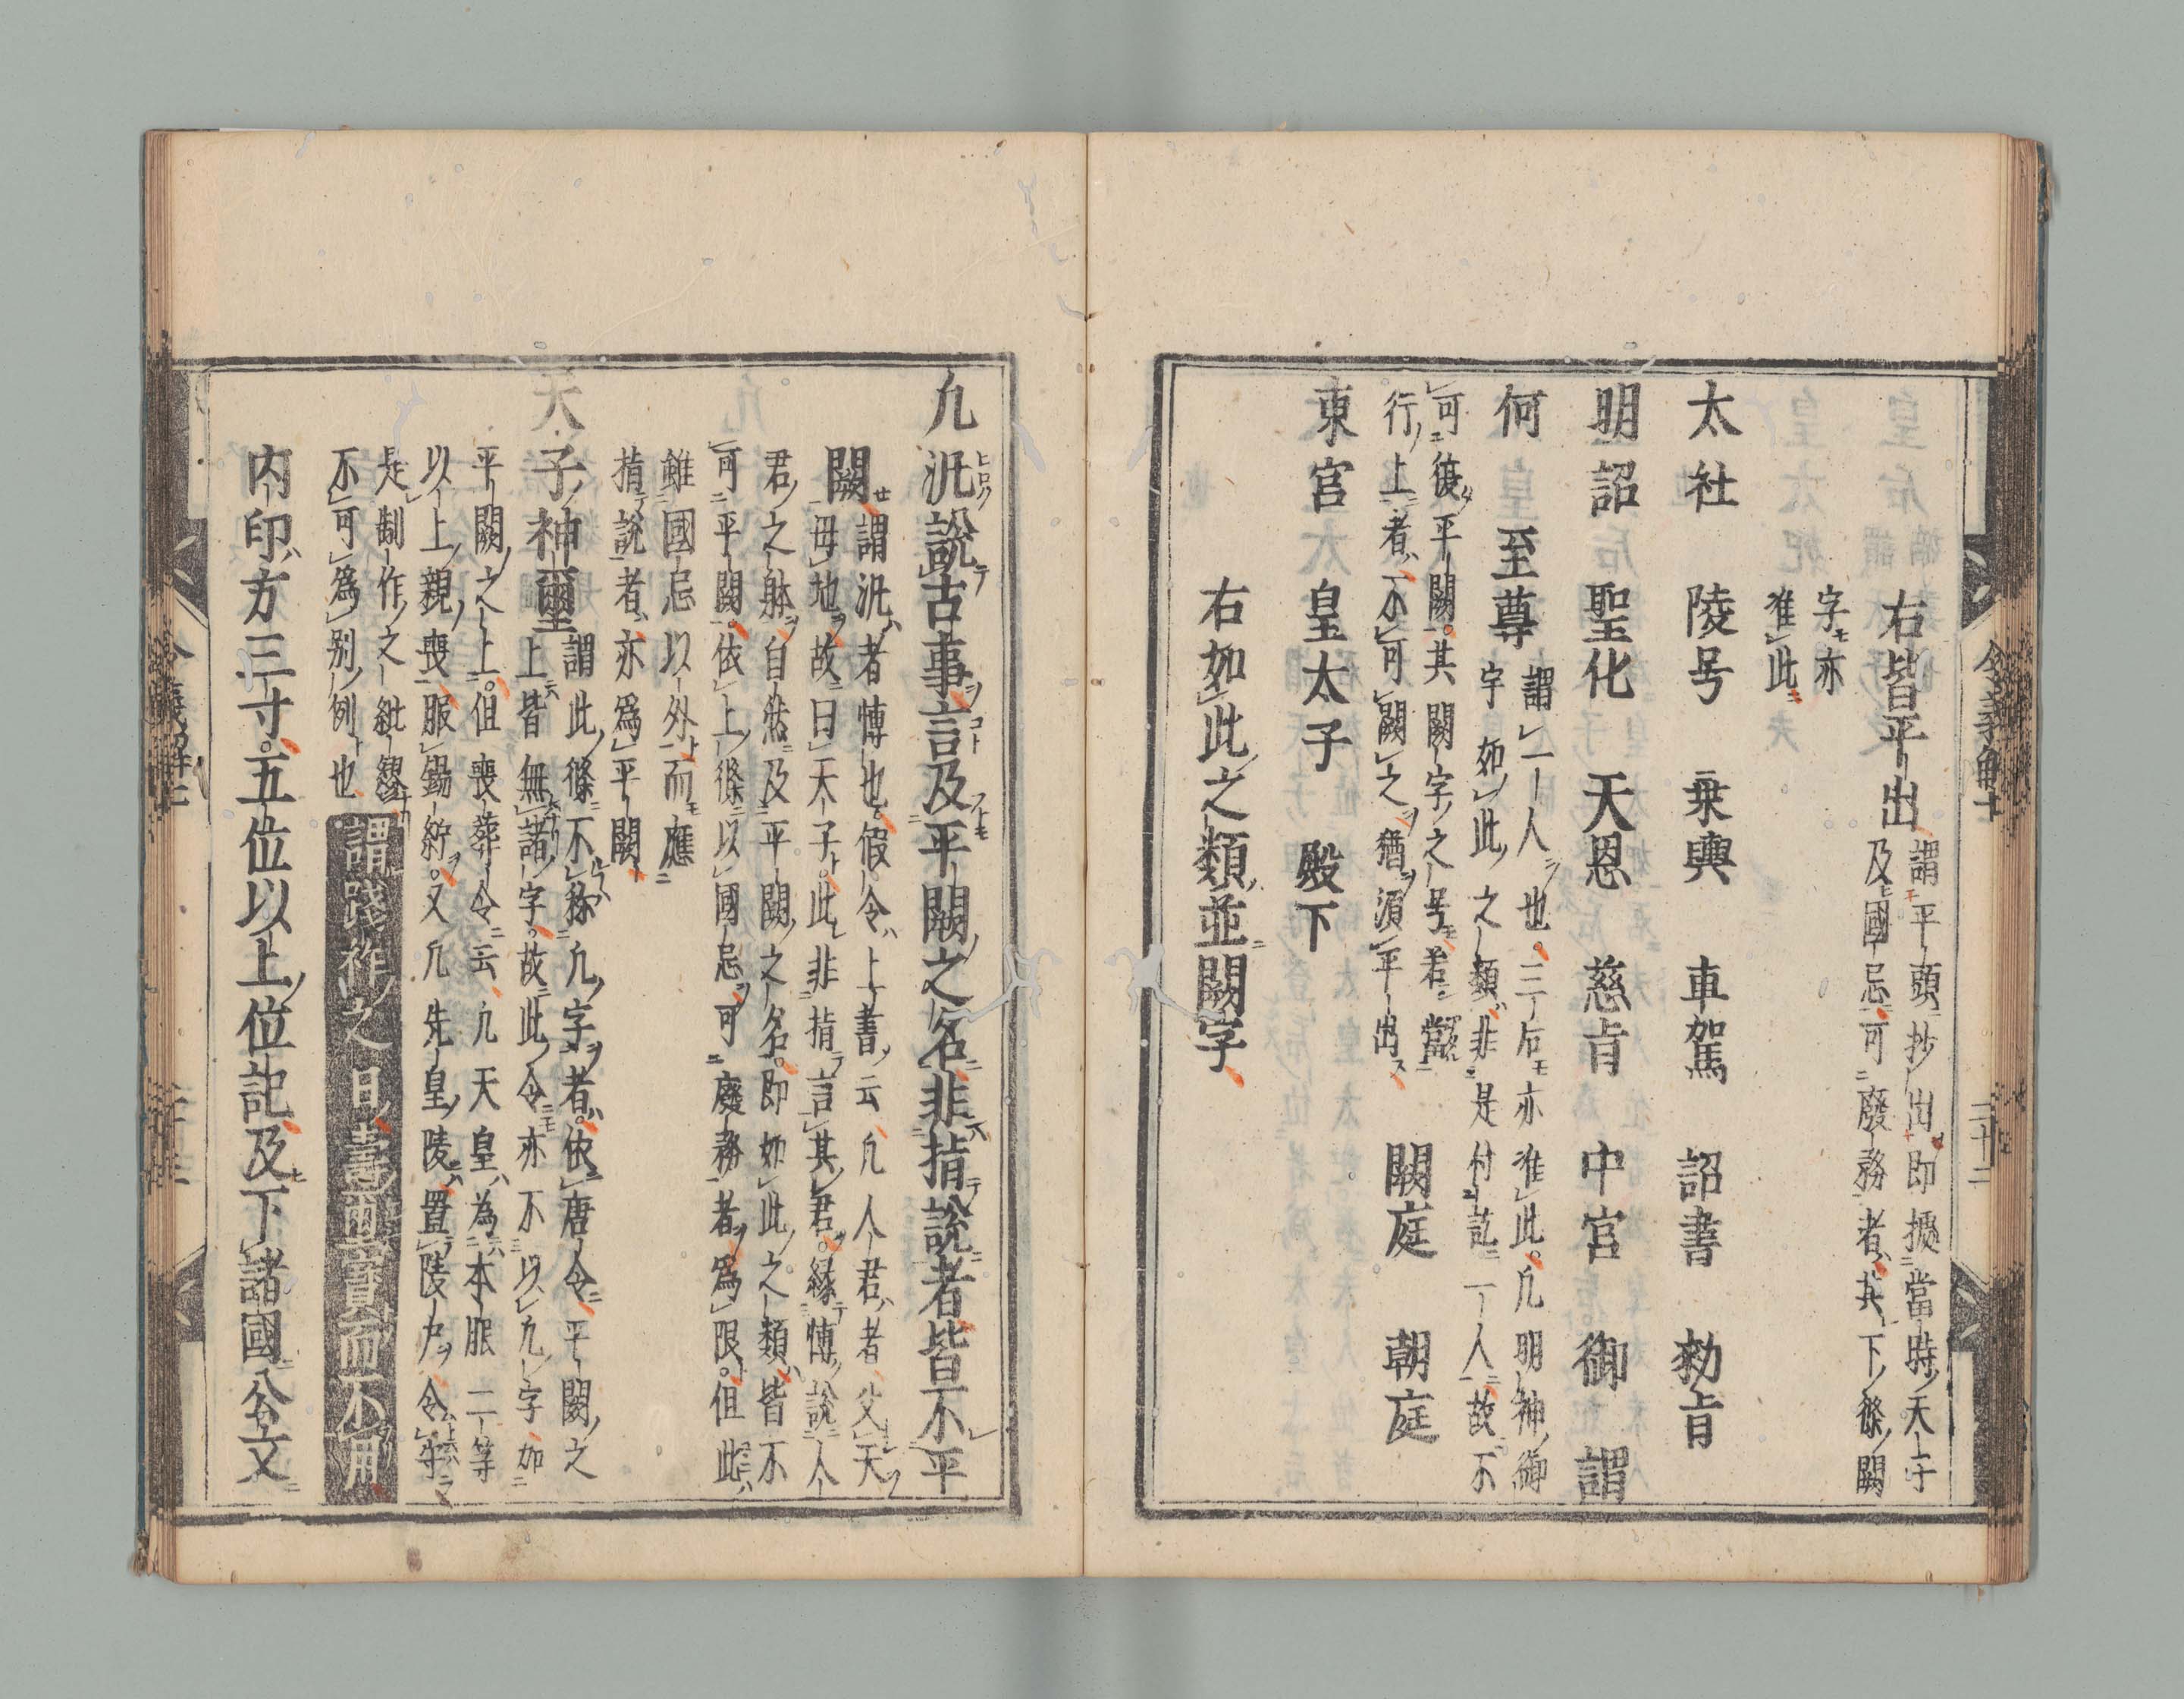 右皆平出
謂平頭抄出即擬當時天子
及國忌可廢務者其下條闕
字亦
准此
太社　陵号　乗輿　車駕　詔書　勅旨
明詔　聖化　天恩　慈旨　中宮　御謂
何　至尊
謂一人也三后亦准此凡明神御
宇如此之類非是付託一人故不
可復平闕其闕字之号若當
行上者不可闕之猶須平出
闕庭　朝庭
東宮　皇太子　殿下
右如此之類並闕字
凢汎說古事言及平闕之名非指說者皆不平
闕
謂汎者博也假令上書云凢人君者父天
母地故曰天子此非指言其君縁博說人
君之躰自然及平闕之名即如此之類皆不
可平闕依上條以國忌可廢務者爲限但此
雖國忌以外而應
指說者亦爲平闕
天子神璽
謂此條不稱凢字者依唐令平闕之
上皆無諸字故此令亦不以凢字如
平闕之上但喪葬令云凢天皇為本服二等
以上親喪服錫紵又凢先皇陵置陵戸令守
是制作之紕繆
不可爲別例也
謂踐祚之日壽璽寶而不用
内印方三寸五位以上位記及下諸國公文
令義解七
二十二